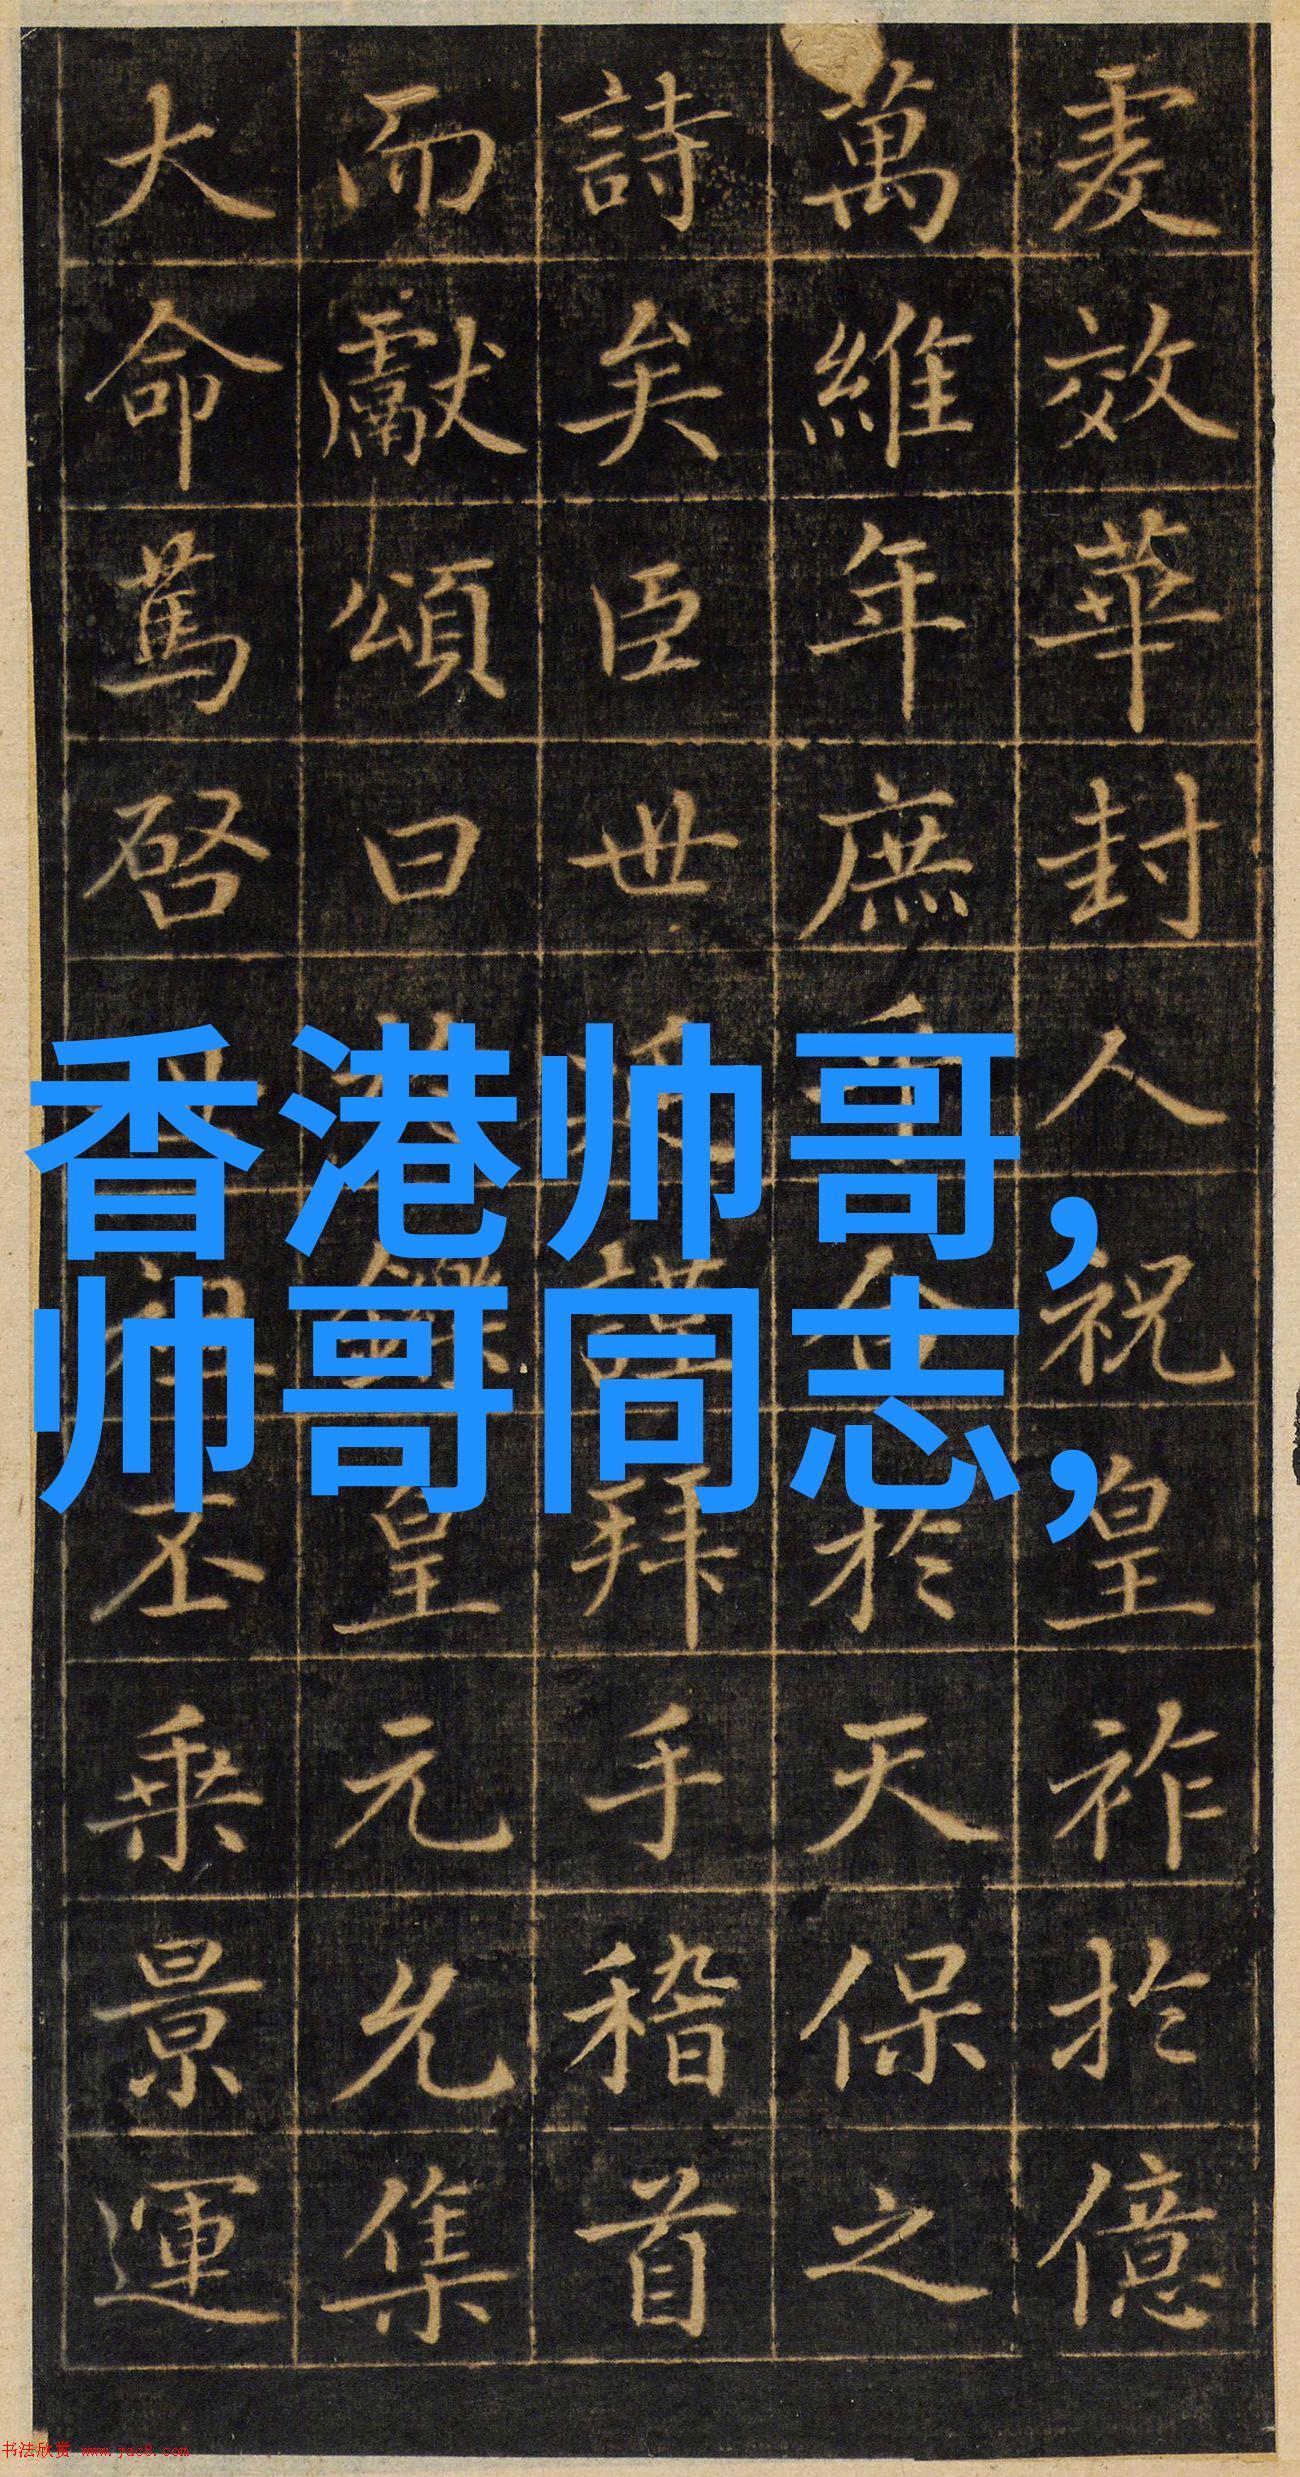 夌效華封人祝皇祚於億
萬維年庶年合於天保之
詩矣臣世南謹拜手稽首
而獻頌曰於鑠皇元允集
大命篤啓聖祖丕乘景運
香港帅哥,
帅哥同志,
书法欣赏 www.yac8.com